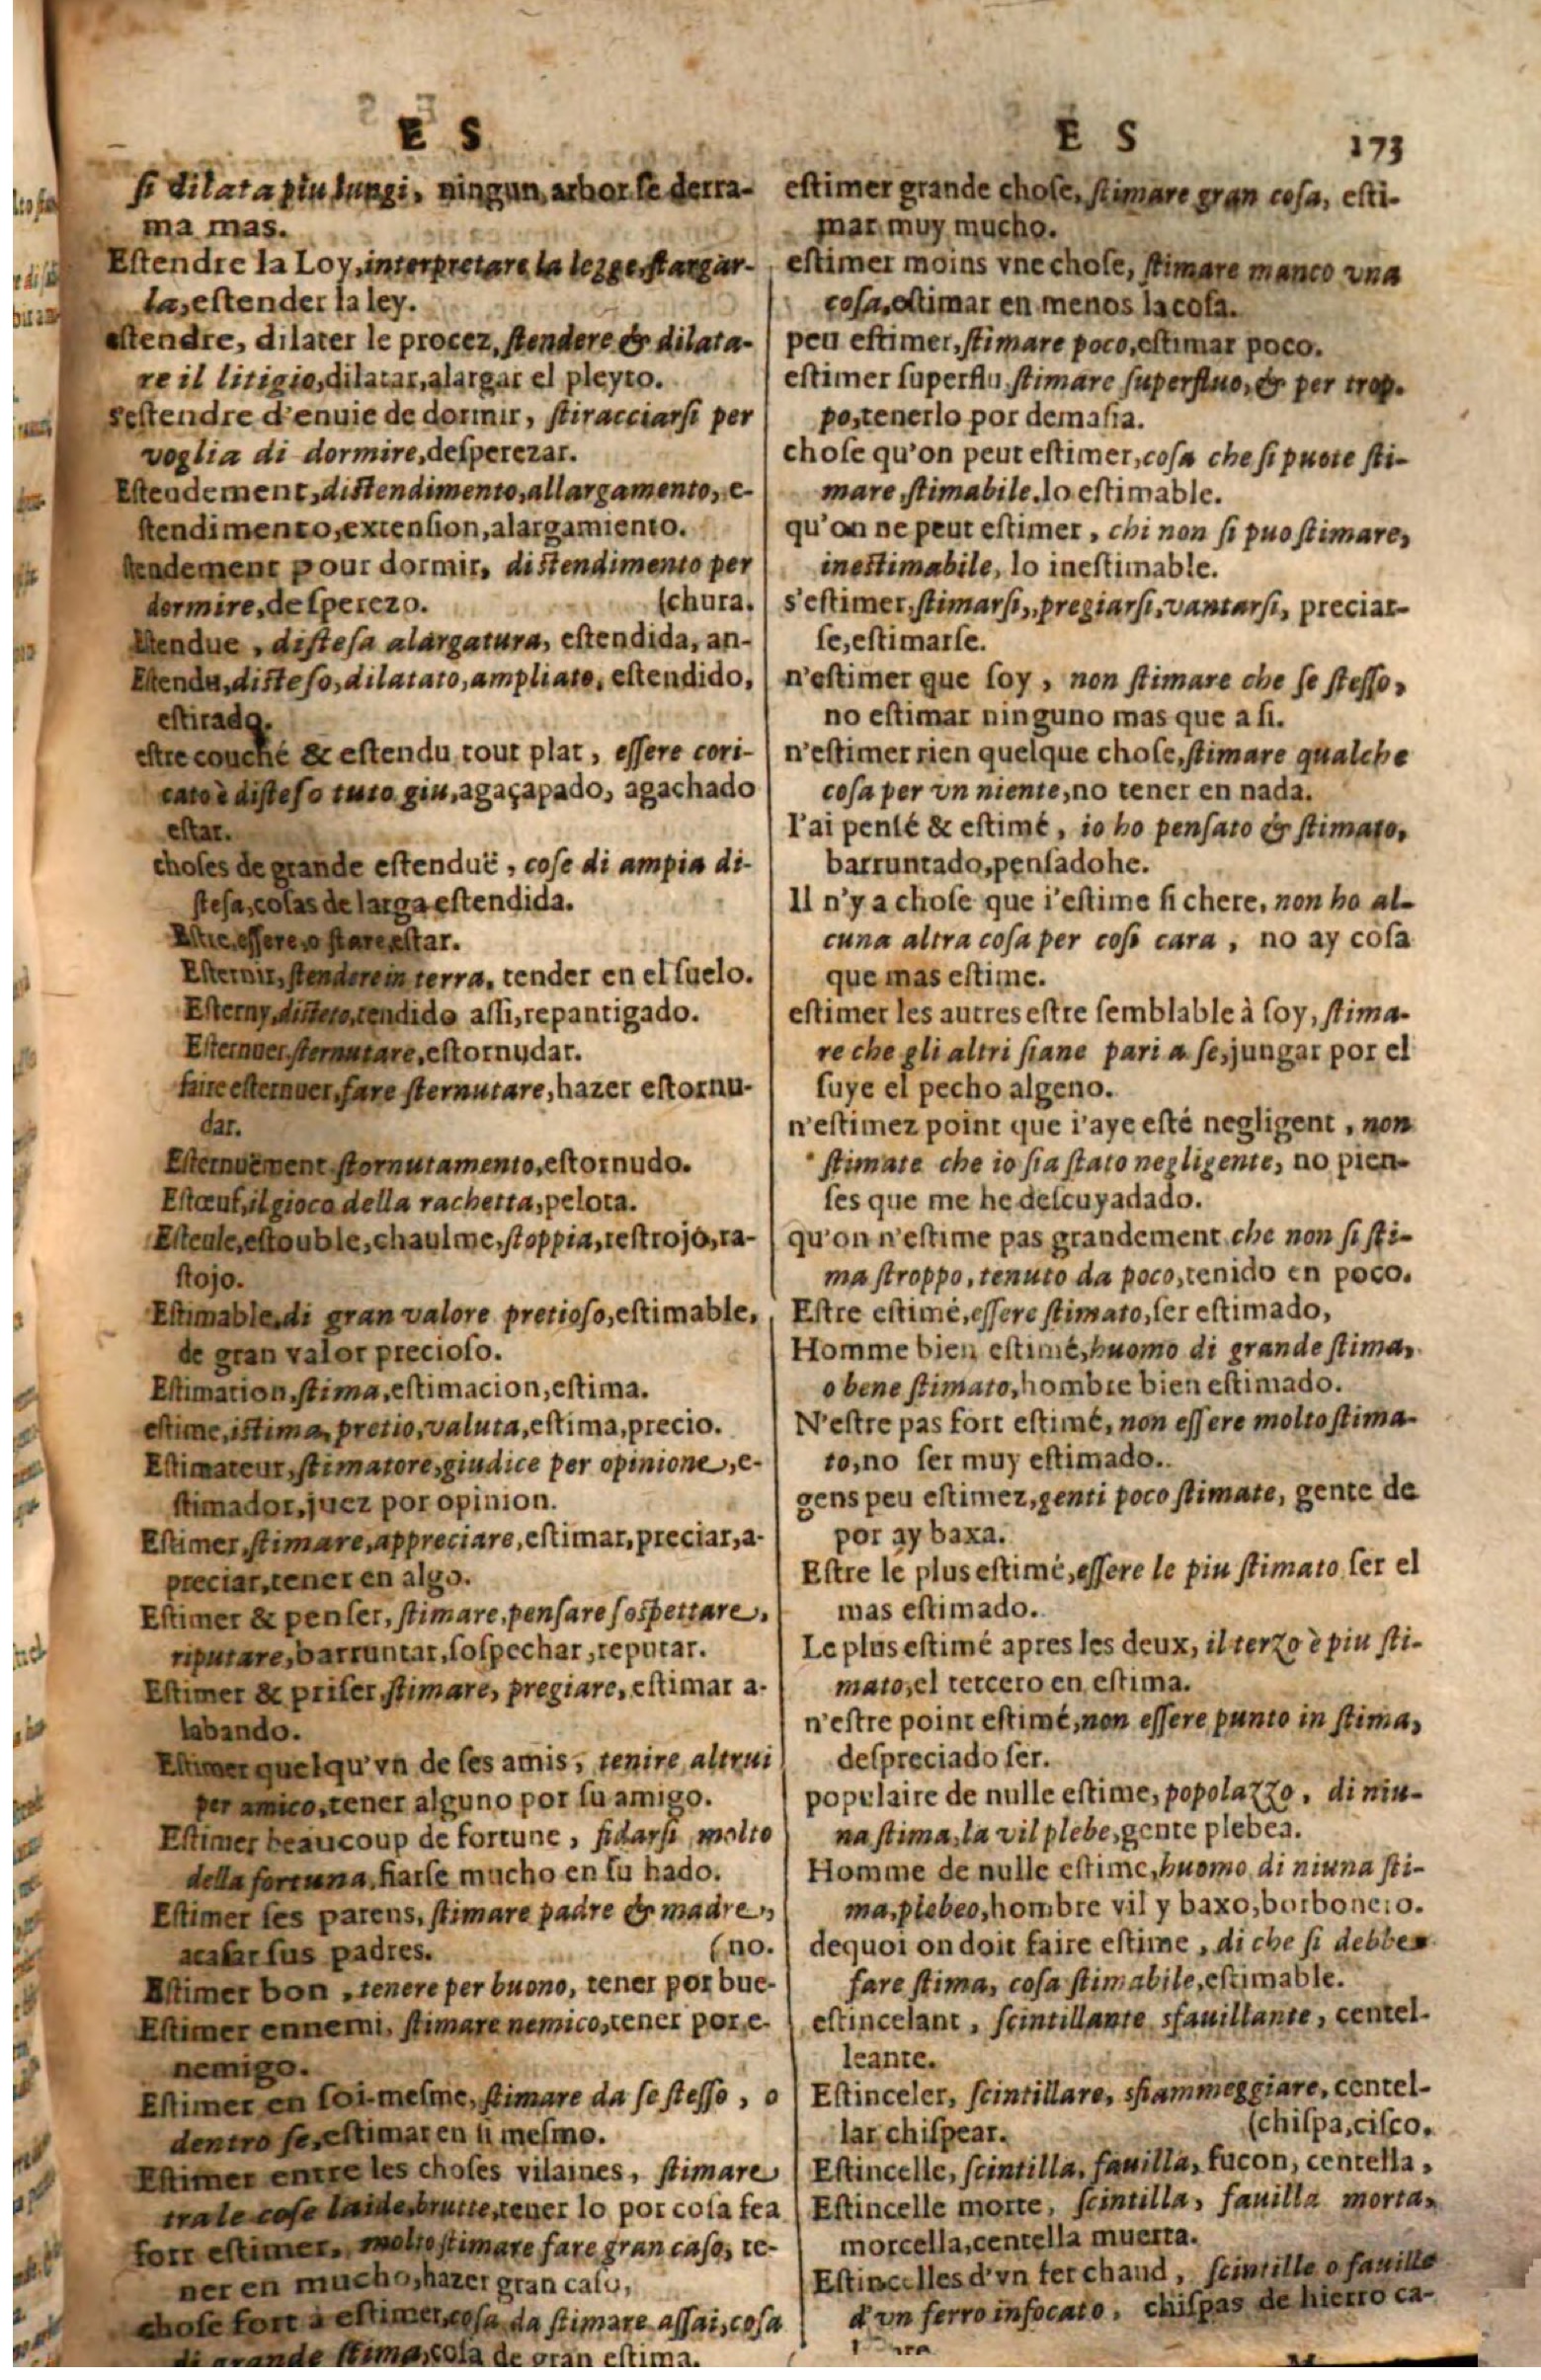 E S
si dilata piu lungi, ningun, arbor se derra-
ma mas.
Estendre la Loy, interpretare la legge, stargar-
la, estender la ley.
estendre, dilater le procez, stendere & dilata-
re il litigio, dilatar, alargar el pleyto.
s'estendre d'enuie de dormir, stiracciarsi per
voglia di dormire, desperezar.
Estendement, distendimento, allargamento, e-
stendimento, extension, alargamiento.
stendement pour dormir, distendimento per
dormire, desperezo. (chura.
Estendue, distesa alargatura, estendida, an-
Estendu, disteso, dilatato, ampliato, estendido,
estirado.
estre couché & estendu tout plat, essere cori-
cato è disteso tuto giu, agaçapado, agachado
estar.
choses de grande estenduë, cose di ampia di-
stesa, cosas de larga estendida.
Estre, essere, o stare, estar.
Esternir, stendere in terra, tender en el suelo.
Esterny, disteso, tendido assi, repantigado.
Esternuer, sternutare, estornudar.
faire esternuer, fare sternutare, hazer estornu-
dar.
Esternuëment, stornutamento, estornudo.
Estœuf, il gioco della rachetta, pelota.
Esteule, estouble, chaulme, stoppia, restrojo, ra-
stojo.
Estimable, di gran valore pretioso, estimable,
de gran valor precioso.
Estimation, stima, estimacion, estima.
estime, istima, pretio, valuta, estima, precio.
Estimateur, stimatore, giudice per opinione, e-
stimador, juez por opinion.
Estimer, stimare, appreciare, estimar, preciar, a-
preciar, tener en algo.
Estimer & penser, stimare, pensare sospettare,
riputare, barruntar, sospechar, reputar.
Estimer & priser, stimare, pregiare, estimar a-
labando.
Estimer quelqu'vn de ses amis, tenire altrui
per amico, tener alguno por su amigo.
Estimer beaucoup de fortune, fidarsi molto
della fortuna, fiarse mucho en su hado.
Estimer ses parens, stimare padre & madre,
acatar sus padres. (no.
Estimer bon, tenere per buono, tener por bue-
Estimer ennemi, stimare nemico, tener por e-
nemigo.
Estimer en soi-mesme, stimare da se stesso, o
dentro se, estimar en si mesmo.
Estimer entre les choses vilaines, stimare
tra le cose laide, brutte, tener lo por cosa fea
fort estimer, molto stimare fare gran caso, te-
ner en mucho, hazer gran caso,
chose fort à estimer, cosa da stimare assai, cosa
di grande stima, cosa de gran estima.
E S 173
estimer grande chose, stimare gran cosa, esti-
mar muy mucho.
estimer moins vne chose, stimare manco vna
cosa, estimar en menos la cosa.
peu estimer, stimare poco, estimar poco.
estimer superflu, stimare superfluo, & per trop-
po, tenerlo por demasia.
chose qu'on peut estimer, cosa che si puote sti-
mare, stimabile, lo estimable.
qu'on ne peut estimer, chi non si puo stimare,
inestimabile, lo inestimable.
s'estimer, stimarsi, pregiarsi, vantarsi, preciar-
se, estimarse.
n'estimer que soy, non stimare che se stesso,
no estimar ninguno mas que a si.
n'estimer rien quelque chose, stimare qualche
cosa per vn niente, no tener en nada.
I'ai pensé & estimé, io ho pensato & stimato,
barruntado, pensadohe.
Il n'y a chose que i'estime si chere, non ho al-
cuna altra cosa per cosi cara, no ay cosa
que mas estime.
estimer les autres estre semblable à soy, stima-
re che gli altri siane pari a se, jungar por el
suye el pecho algeno.
n'estimez point que i'aye esté negligent, non
stimate che io sia stato negligente, no pien-
ses que me he descuyadado.
qu'on n'estime pas grandement che non si sti-
ma stroppo, tenuto da poco, tenido en poco.
Estre estimé, essere stimato, ser estimado,
Homme bien estimé, huomo di grande stima,
o bene stimato, hombre bien estimado.
N'estre pas fort estimé, non essere molto stima-
to, no ser muy estimado.
gens peu estimez, genti poco stimate, gente de
por ay baxa.
Estre le plus estimé, essere le piu stimato ser el
mas estimado.
Le plus estimé apres les deux, il terzo è piu sti-
mato, el tercero en estima.
n'estre point estimé, non essere punto in stima,
despreciado ser.
populaire de nulle estime, popolazzo, di niu-
na stima, la vil plebe, gente plebea.
Homme de nulle estime, huomo di niuna sti-
ma, plebeo, hombre vil y baxo, borbonero.
dequoi on doit faire estime, di che si debbe
fare stima, cosa stimabile, estimable.
estincelant, scintillante sfauillante, centel-
leante.
Estinceler, scintillare, sfiammeggiare, centel-
lar, chispear. (chispa, cisco.
Estincelle, scintilla, fauilla, fucon, centella,
Estincelle morte, scintilla, fauilla morta,
morcella, centella muerta.
Estincelles d'vn fer chaud, scintille o fauille
d'vn ferro infocato, chispas de hierro ca-